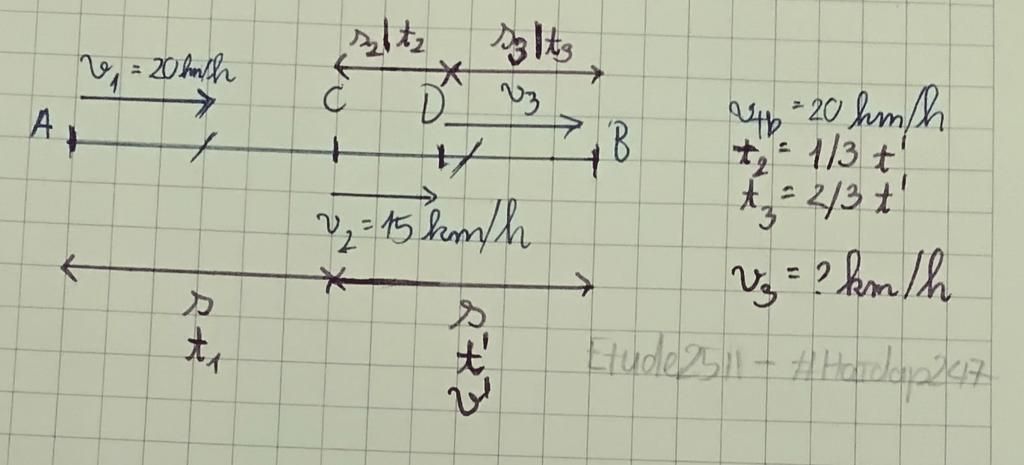 s₂|t₂ s₃|t₃
v₁ = 20 km/h
C D v₃
A B
v₂ = 15 km/h
s s
t₁ t'
v'
v_tb = 20 km/h
t₂ = 1/3 t'
t₃ = 2/3 t'
v₃ = ? km/h
Etude2511 - #Hoidap247